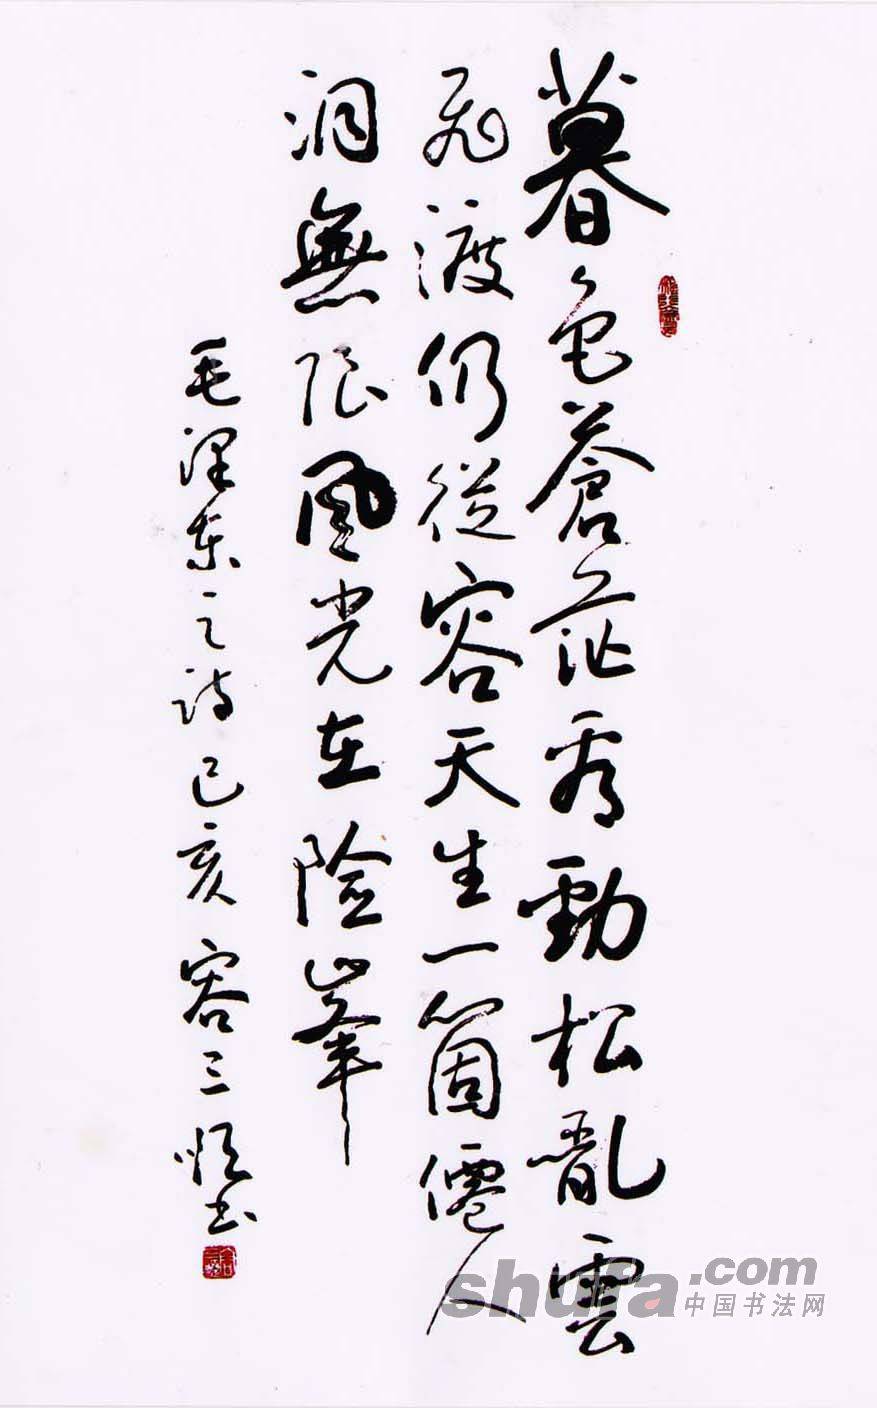 暮色蒼茫看勁松亂雲
飛渡仍從容天生一箇僊人
洞無限風光在險峯
毛澤東之詩己亥容三书
shufa.com
中国书法网